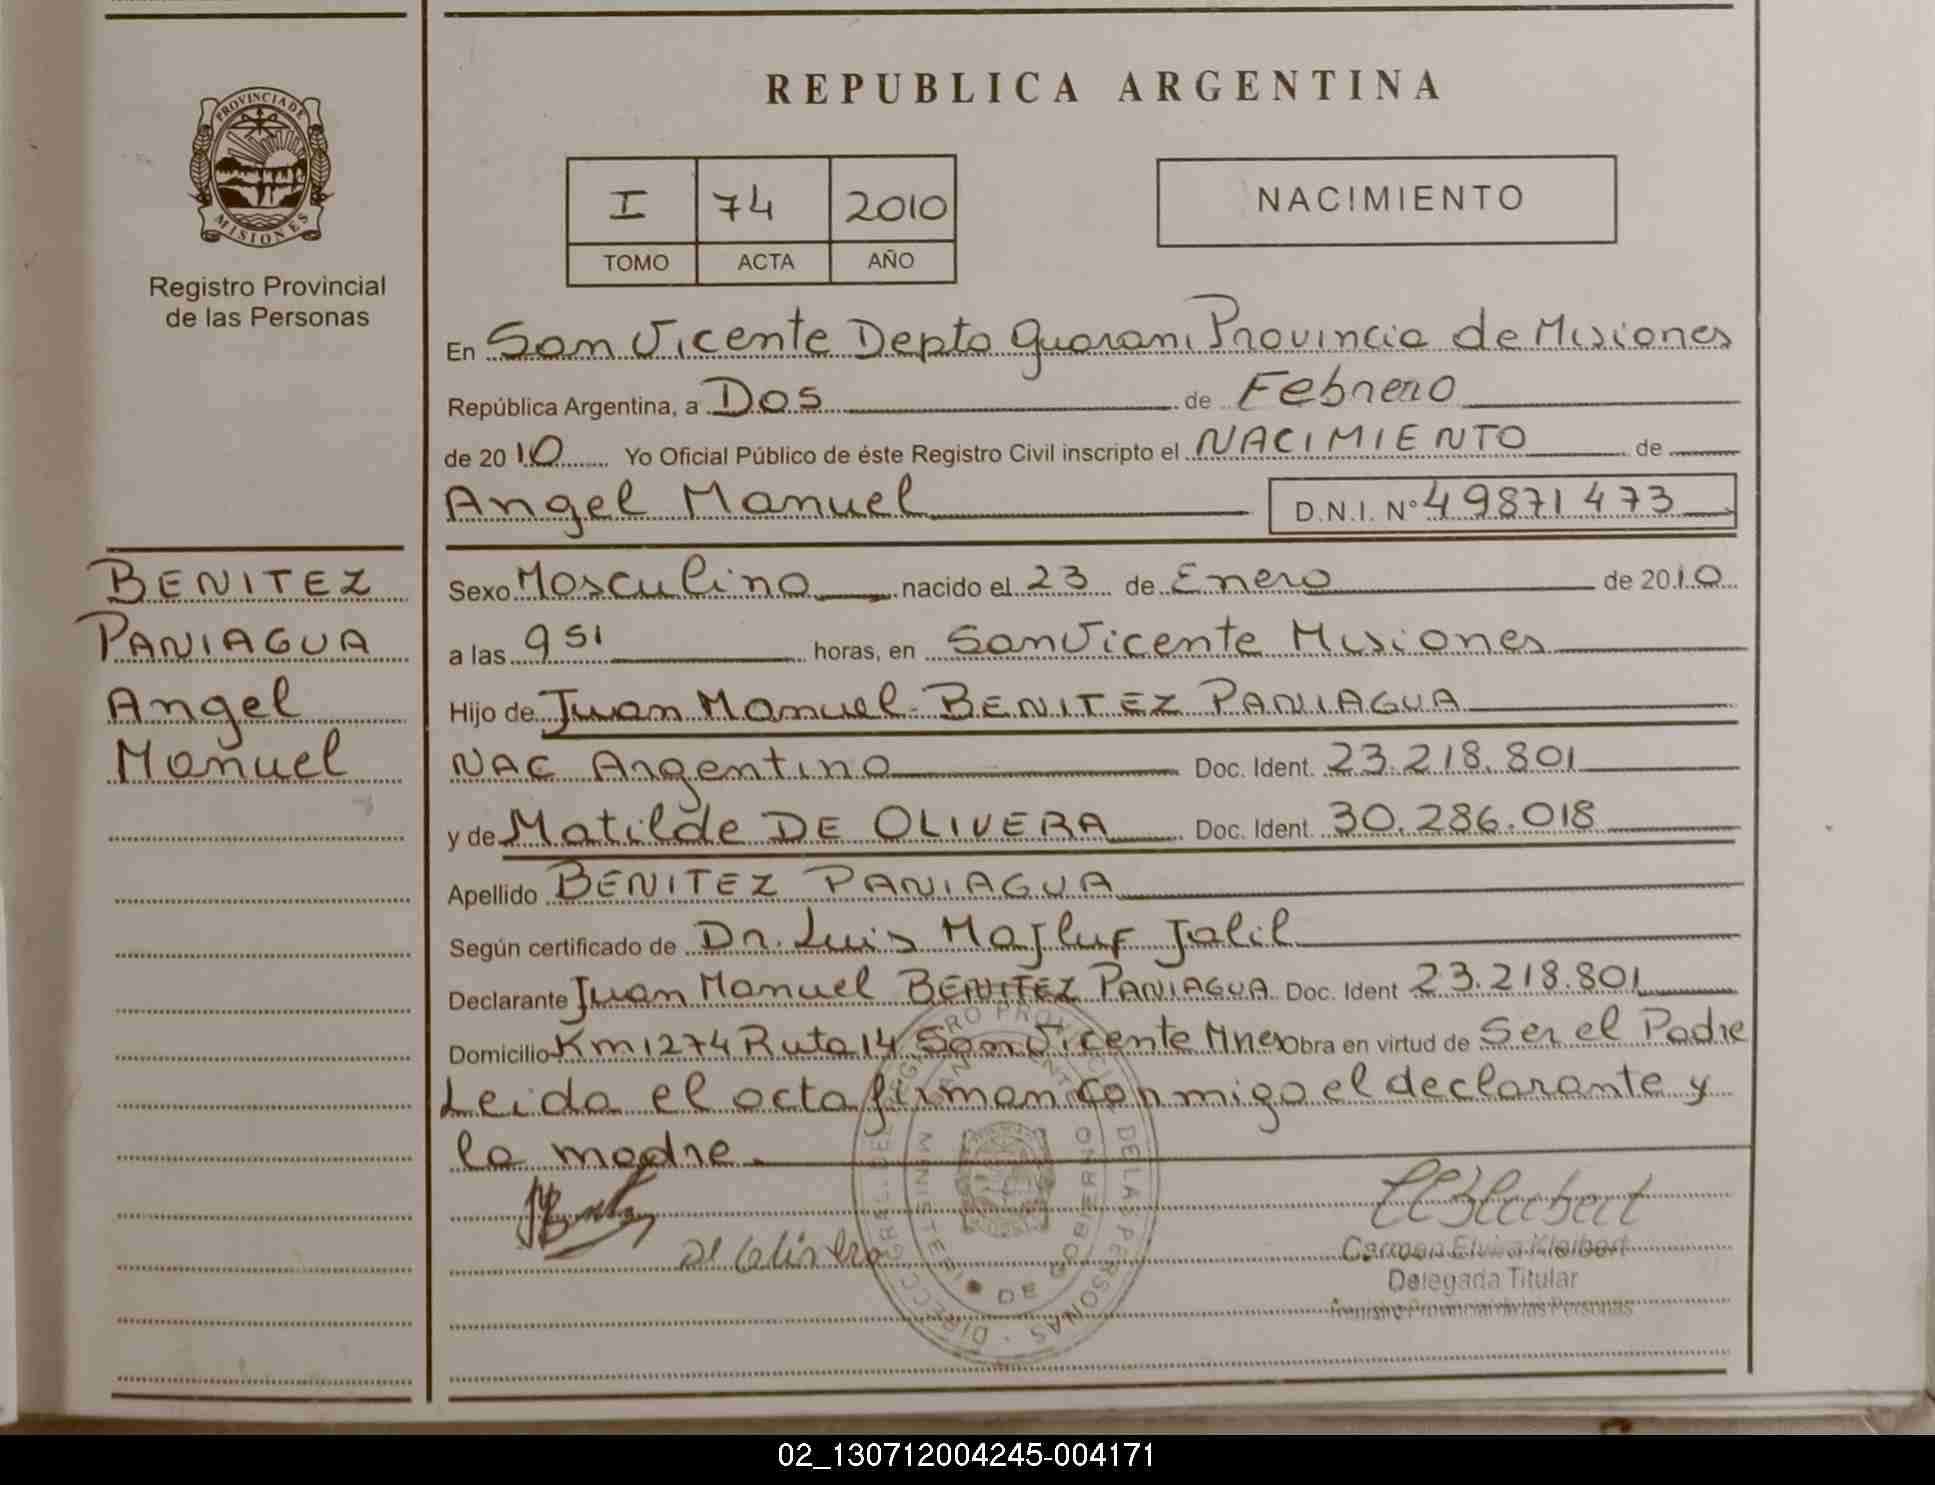 PROVINCIA DE
MISIONES
Registro Provincial
de las Personas
BENITEZ
PANIAGUA
Angel
Manuel
REPUBLICA ARGENTINA
I 74 2010
TOMO ACTA AÑO
NACIMIENTO
En San Vicente Depto Guarani Provincia de Misiones
República Argentina, a Dos de Febrero
de 2010 Yo Oficial Público de éste Registro Civil inscripto el NACIMIENTO de
Angel Manuel D.N.I. Nº 49871473
Sexo Masculino nacido el 23 de Enero de 2010
a las 9 51 horas, en San Vicente Misiones
Hijo de Juan Manuel BENITEZ PANIAGUA
NAC Argentino Doc. Ident. 23.218.801
y de Matilde DE OLIVERA Doc. Ident. 30.286.018
Apellido BENITEZ PANIAGUA
Según certificado de Dr. Luis Majluf Jalil
Declarante Juan Manuel BENITEZ PANIAGUA Doc. Ident 23.218.801
Domicilio Km 1274 Ruta 14 San Vicente Mnes Obra en virtud de Ser el Padre
Leida el acta firman conmigo el declarante y
la madre.
Carmen Elvira Kleibert
Delegada Titular
Registro Provincial de las Personas
02_130712004245-004171